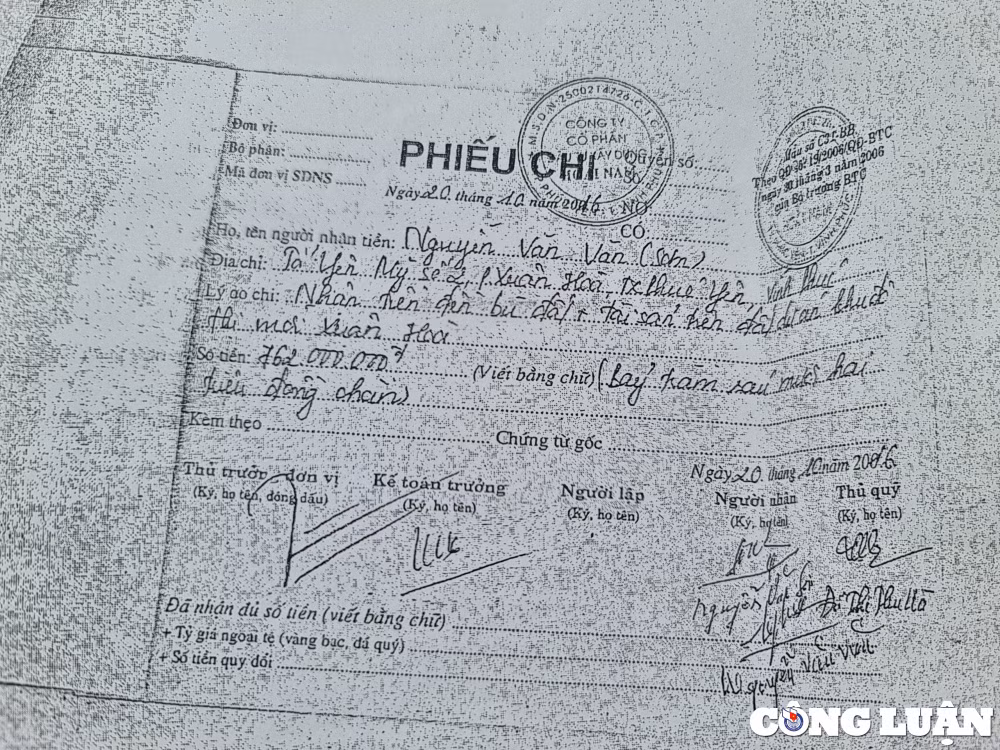 Đơn vị: ..............
Bộ phận: ..............
Mã đơn vị SDNS .......
PHIẾU CHI
Quyển số: ......
Số
Ngày 20 tháng 10 năm 2016
NỢ
CÓ
M.S.D.N:2500214726-C.T.C
CÔNG TY
CỔ PHẦN
XÂY DỰNG
Mẫu số C31-BB
Theo QĐ số: 19/2006/QĐ-BTC
ngày 30 tháng 3 năm 2006
của Bộ trưởng BTC
Họ, tên người nhận tiền: Nguyễn Văn Văn (Sơn)
Địa chỉ: Tổ Yên Mỹ số 2, P. Xuân Hoà, TX Phúc Yên, Vĩnh Phúc
Lý do chi: Nhận tiền đền bù đất + tài sản trên đất dự án khu đô
thị mới Xuân Hoà
Số tiền: 762.000.000đ (Viết bằng chữ) (Bảy trăm sáu mươi hai
triệu đồng chẵn)
Kèm theo .............. Chứng từ gốc ..............
Ngày 20 tháng 10 năm 2016
Thủ trưởng đơn vị
(Ký, họ tên, đóng dấu)
Kế toán trưởng
(Ký, họ tên)
Người lập
(Ký, họ tên)
Người nhận
(Ký, họ tên)
Thủ quỹ
(Ký, họ tên)
Nguyễn
Thị Thu Hà
Nguyễn Văn
Đã nhận đủ số tiền (viết bằng chữ) ..............
+ Tỷ giá ngoại tệ (vàng bạc, đá quý) ..............
+ Số tiền quy đổi ..............
CÔNG LUẬN